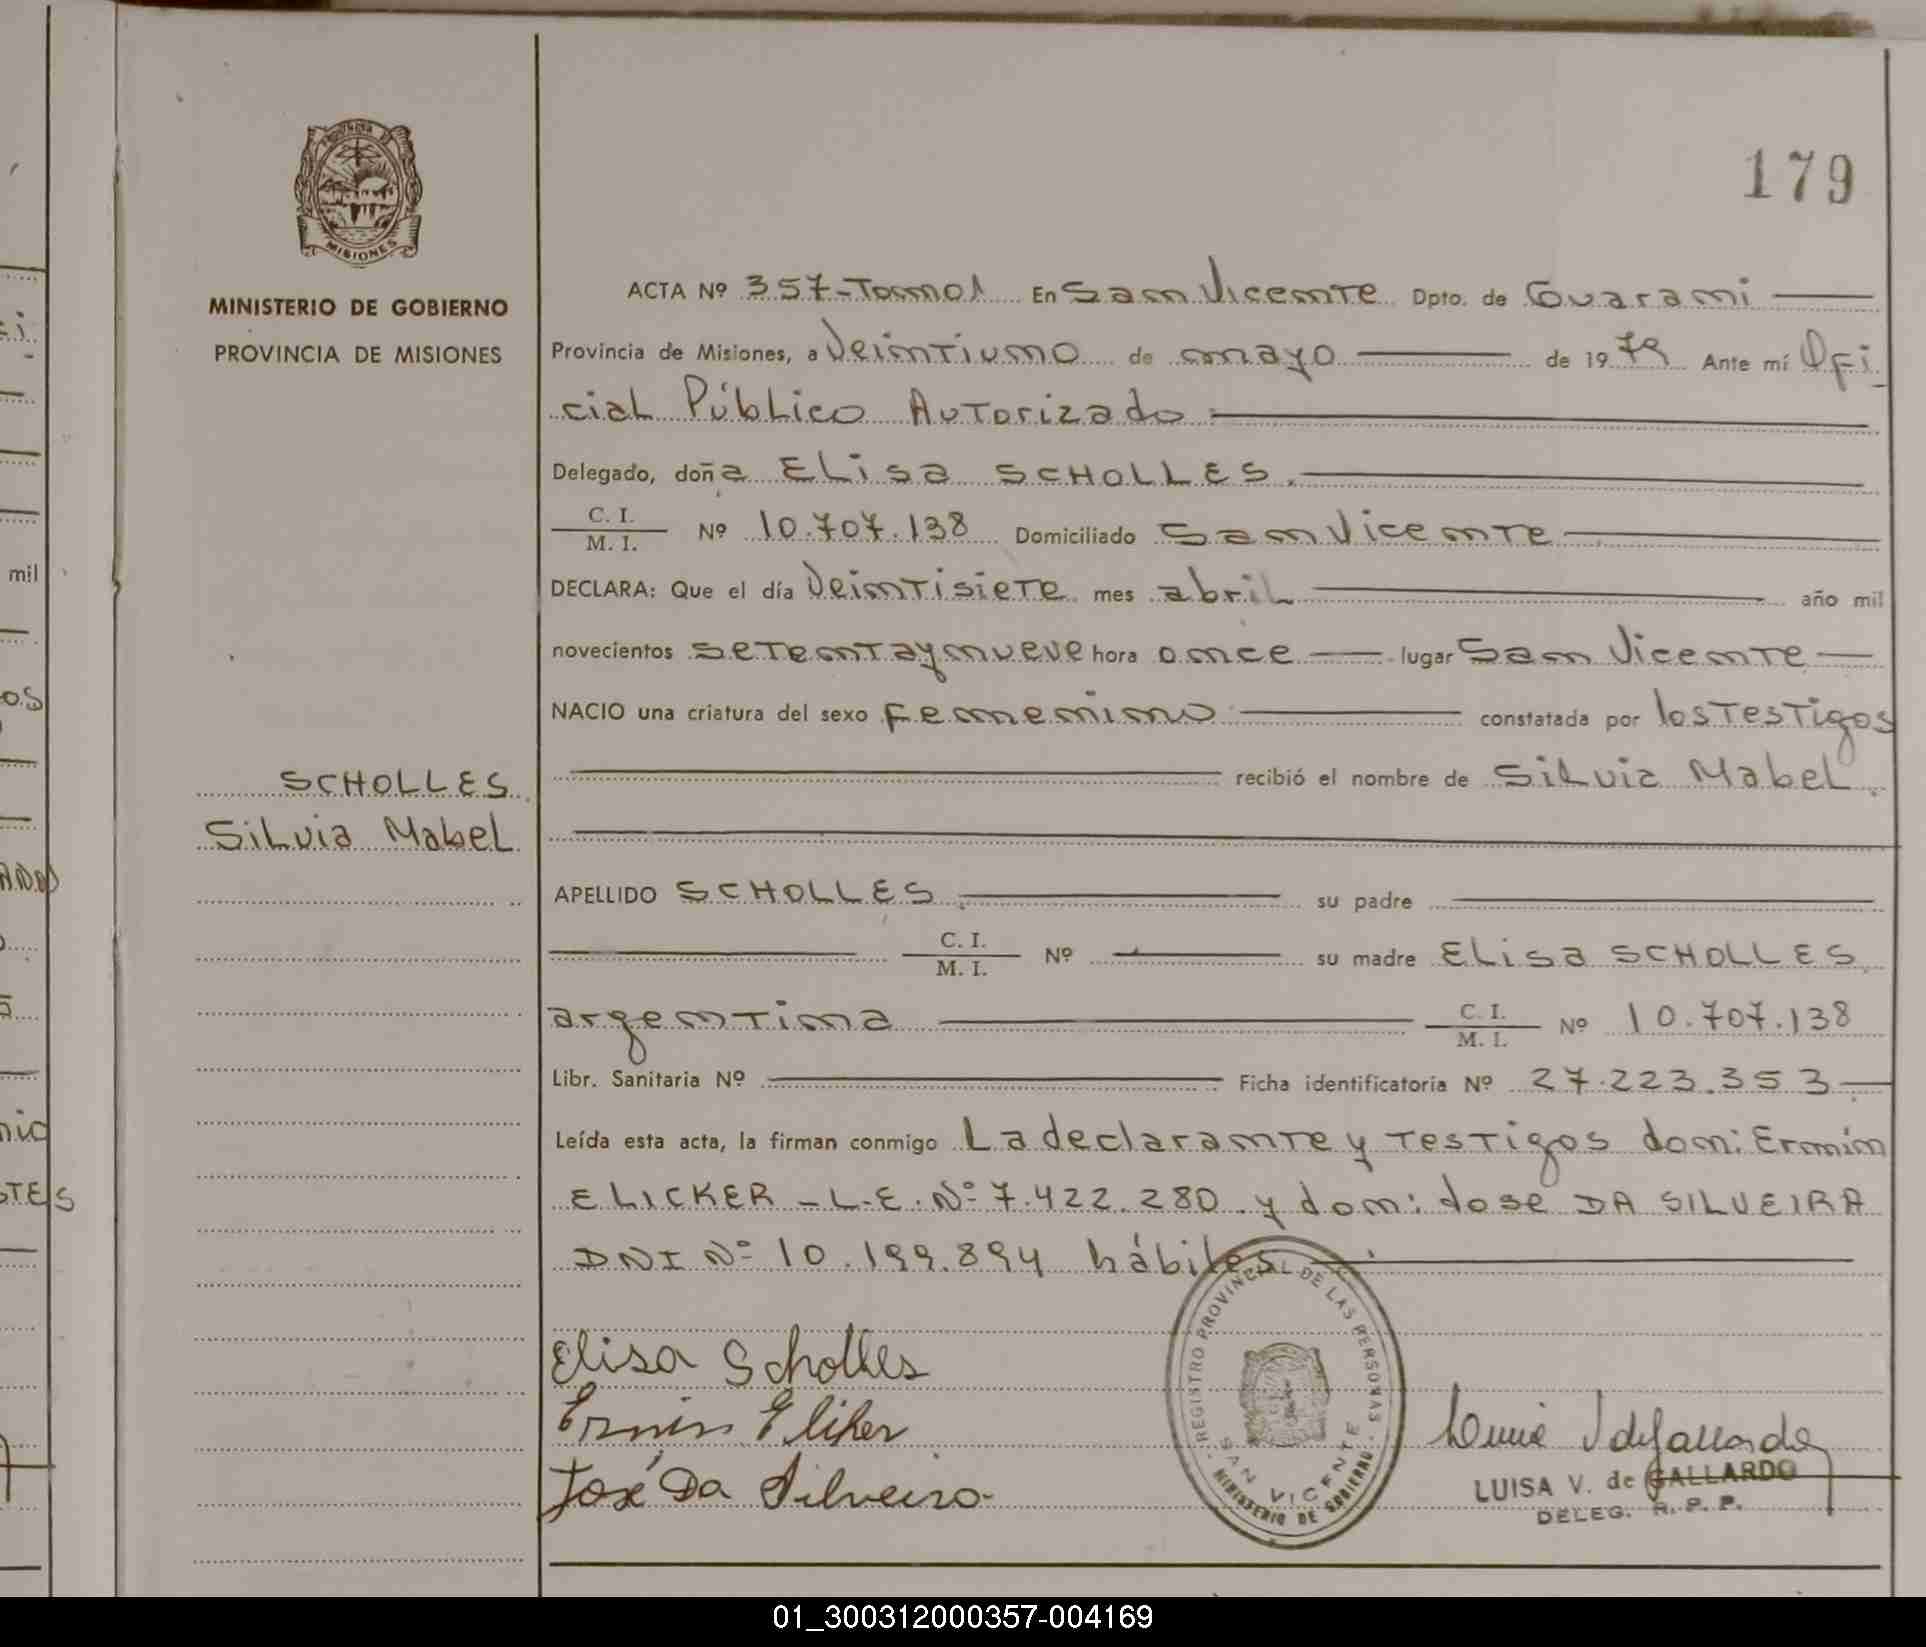 179
MISIONES
MINISTERIO DE GOBIERNO
PROVINCIA DE MISIONES
ACTA Nº 357-Tomo I En San Vicente Dpto. de Guarani
Provincia de Misiones, a Veintiuno de mayo de 1979 Ante mí Ofi
cial Público Autorizado
Delegado, doña ELisa SCHOLLES.
C. I.
M. I. Nº 10.707.138 Domiciliado San Vicente
DECLARA: Que el día Veintisiete mes abril año mil
novecientos setentaynueve hora once lugar San Vicente
NACIO una criatura del sexo Femenino constatada por los Testigos
recibió el nombre de Silvia Mabel.
SCHOLLES
Silvia Mabel
APELLIDO SCHOLLES su padre
C. I.
M. I. Nº su madre ELisa SCHOLLES
argentina C. I.
M. I. Nº 10.707.138
Libr. Sanitaria Nº Ficha identificatoria Nº 27.223.353
Leída esta acta, la firman conmigo La declarante y testigos don: Ermin
ELICKER - L.E. Nº 7.422.280 y don: Jose DA SILVEIRA
DNI Nº 10.199.894 hábiles
Elisa Scholles
Ermin Eliker
José Da Silveira
REGISTRO PROVINCIAL DE LAS PERSONAS
SAN VICENTE
MINISTERIO DE GOBIERNO
LUISA V. de GALLARDO
DELEG. R. P. P.
01_300312000357-004169